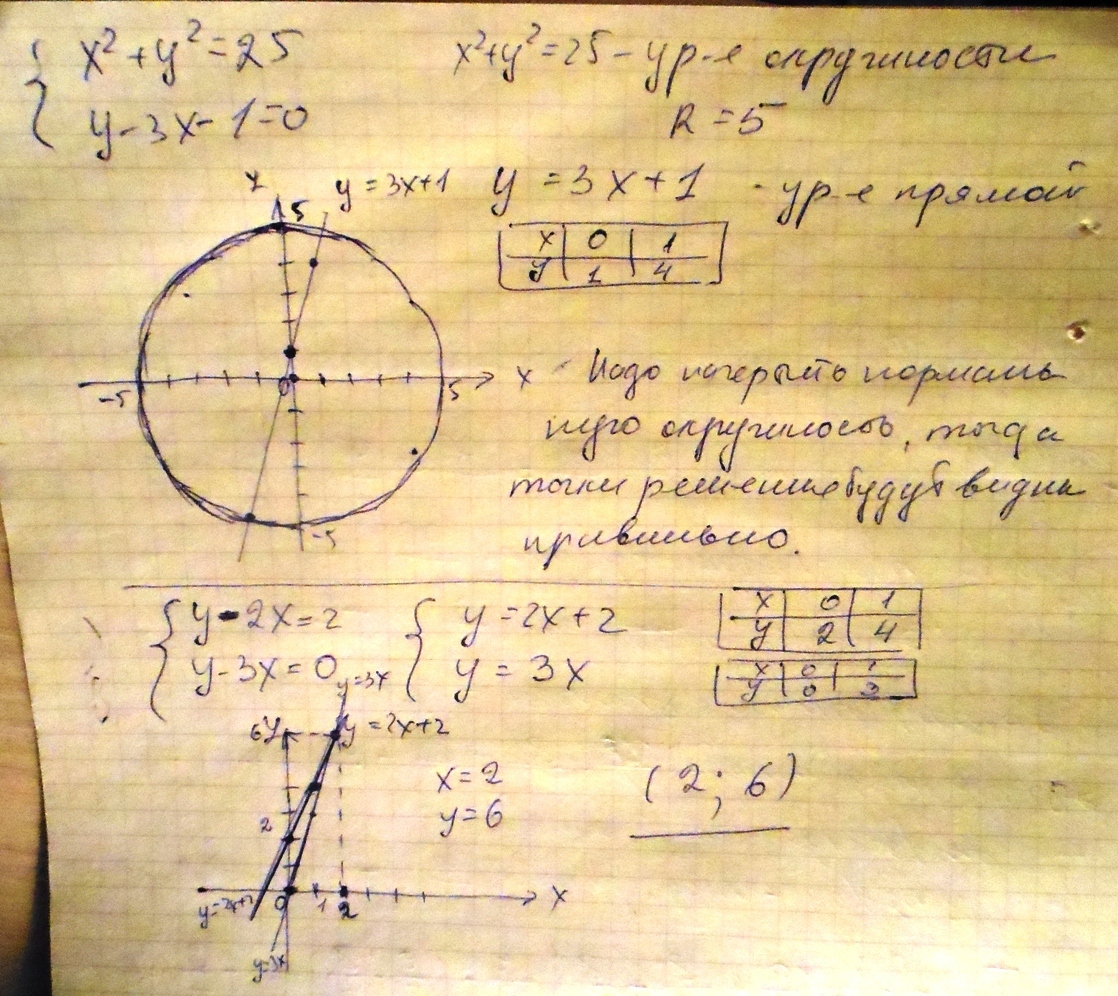 x²+y²=25
y-3x-1=0
x²+y²=25 - ур-е окружности
R=5
y=3x+1 - ур-е прямой
x 0 1
y 1 4
y
5
y=3x+1
-5
0
5
x
-5
Надо начерыть нормаль
ную окружность, тогда
точки решения будут видны
правильно.
y-2x=2
y-3x=0
y=2x+2
y=3x
x 0 1
y 2 4
x 0 1
y 0 3
y=3x
6 y
y=2x+2
2
x=2
y=6
(2; 6)
y=2x+2
0 1 2
x
y=3x